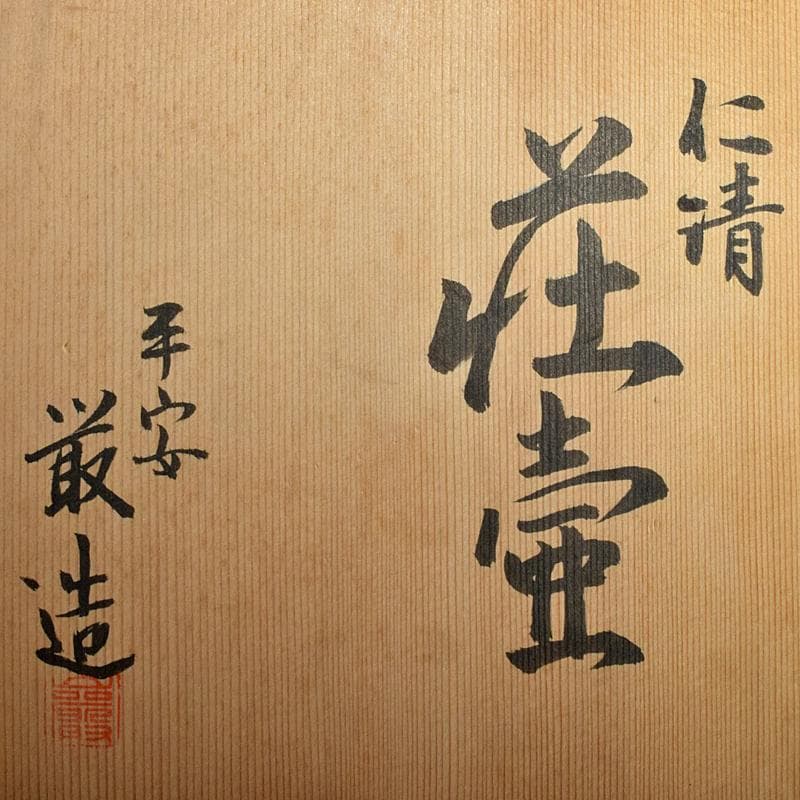 仁清
荘壷
平安
厳造